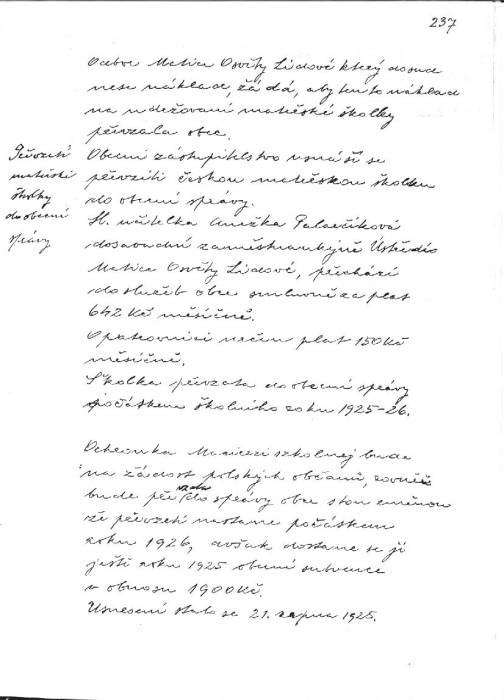 237
Odbor Matice Osvěty Lidové který dosud
nese náklad, žádá, aby tento náklad
na udržování mateřské školky
převzala obec.
Převzetí
mateřské
školky
do obecní
správy
Obecní zastupitelstvo usnáší se
převzíti českou mateřskou školku
do obecní správy.
Sl. učitelka Anežka Palovčíková
dosavadní zaměstnankyně Ústředí
Matice Osvěty Lidové, přechází
do služeb obce smluvně za plat
642 Kč měsíčně.
Opatrovnici určen plat 150 Kč
měsíčně.
Školka převzata do obecní správy
počátkem školního roku 1925-26.
Ochronka Macierzi szkolnej bude
na žádost polských občanů, rovněž
bude převzata do správy obce s tou změnou
že převzetí nastane počátkem
roku 1926, avšak dostane se jí
ještě roku 1925 obecní subvence
v obnosu 1900 Kč.
Usnesení stalo se 21. srpna 1925.